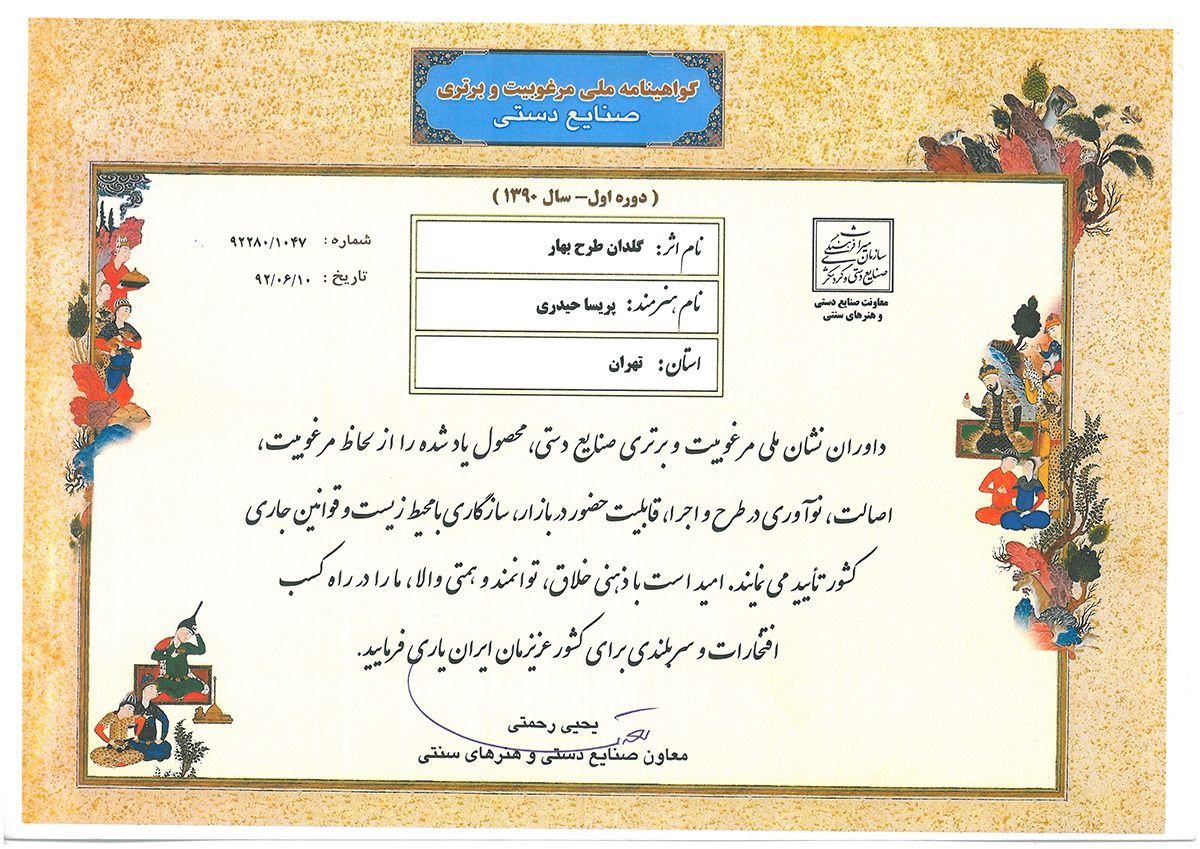 گواهینامه ملی مرغوبیت و برتری
صنایع دستی
( دوره اول- سال ۱۳۹۰ )
شماره: ۹۲۲۸۰/۱۰۴۷
تاریخ: ۹۲/۰۶/۱۰
نام اثر: گلدان طرح بهار
نام هنرمند: پریسا حیدری
استان: تهران
سازمان میراث فرهنگی
صنایع دستی و گردشگری
معاونت صنایع دستی
و هنرهای سنتی
داوران نشان ملی مرغوبیت و برتری صنایع دستی، محصول یاد شده را از لحاظ مرغوبیت،
اصالت، نوآوری در طرح و اجرا، قابلیت حضور در بازار، سازگاری با محیط زیست و قوانین جاری
کشور تأیید می نمایند. امید است با ذهنی خلاق، توانمند و همتی والا، ما را در راه کسب
افتخارات و سربلندی برای کشور عزیزمان ایران یاری فرمایید.
یحیی رحمتی
معاون صنایع دستی و هنرهای سنتی